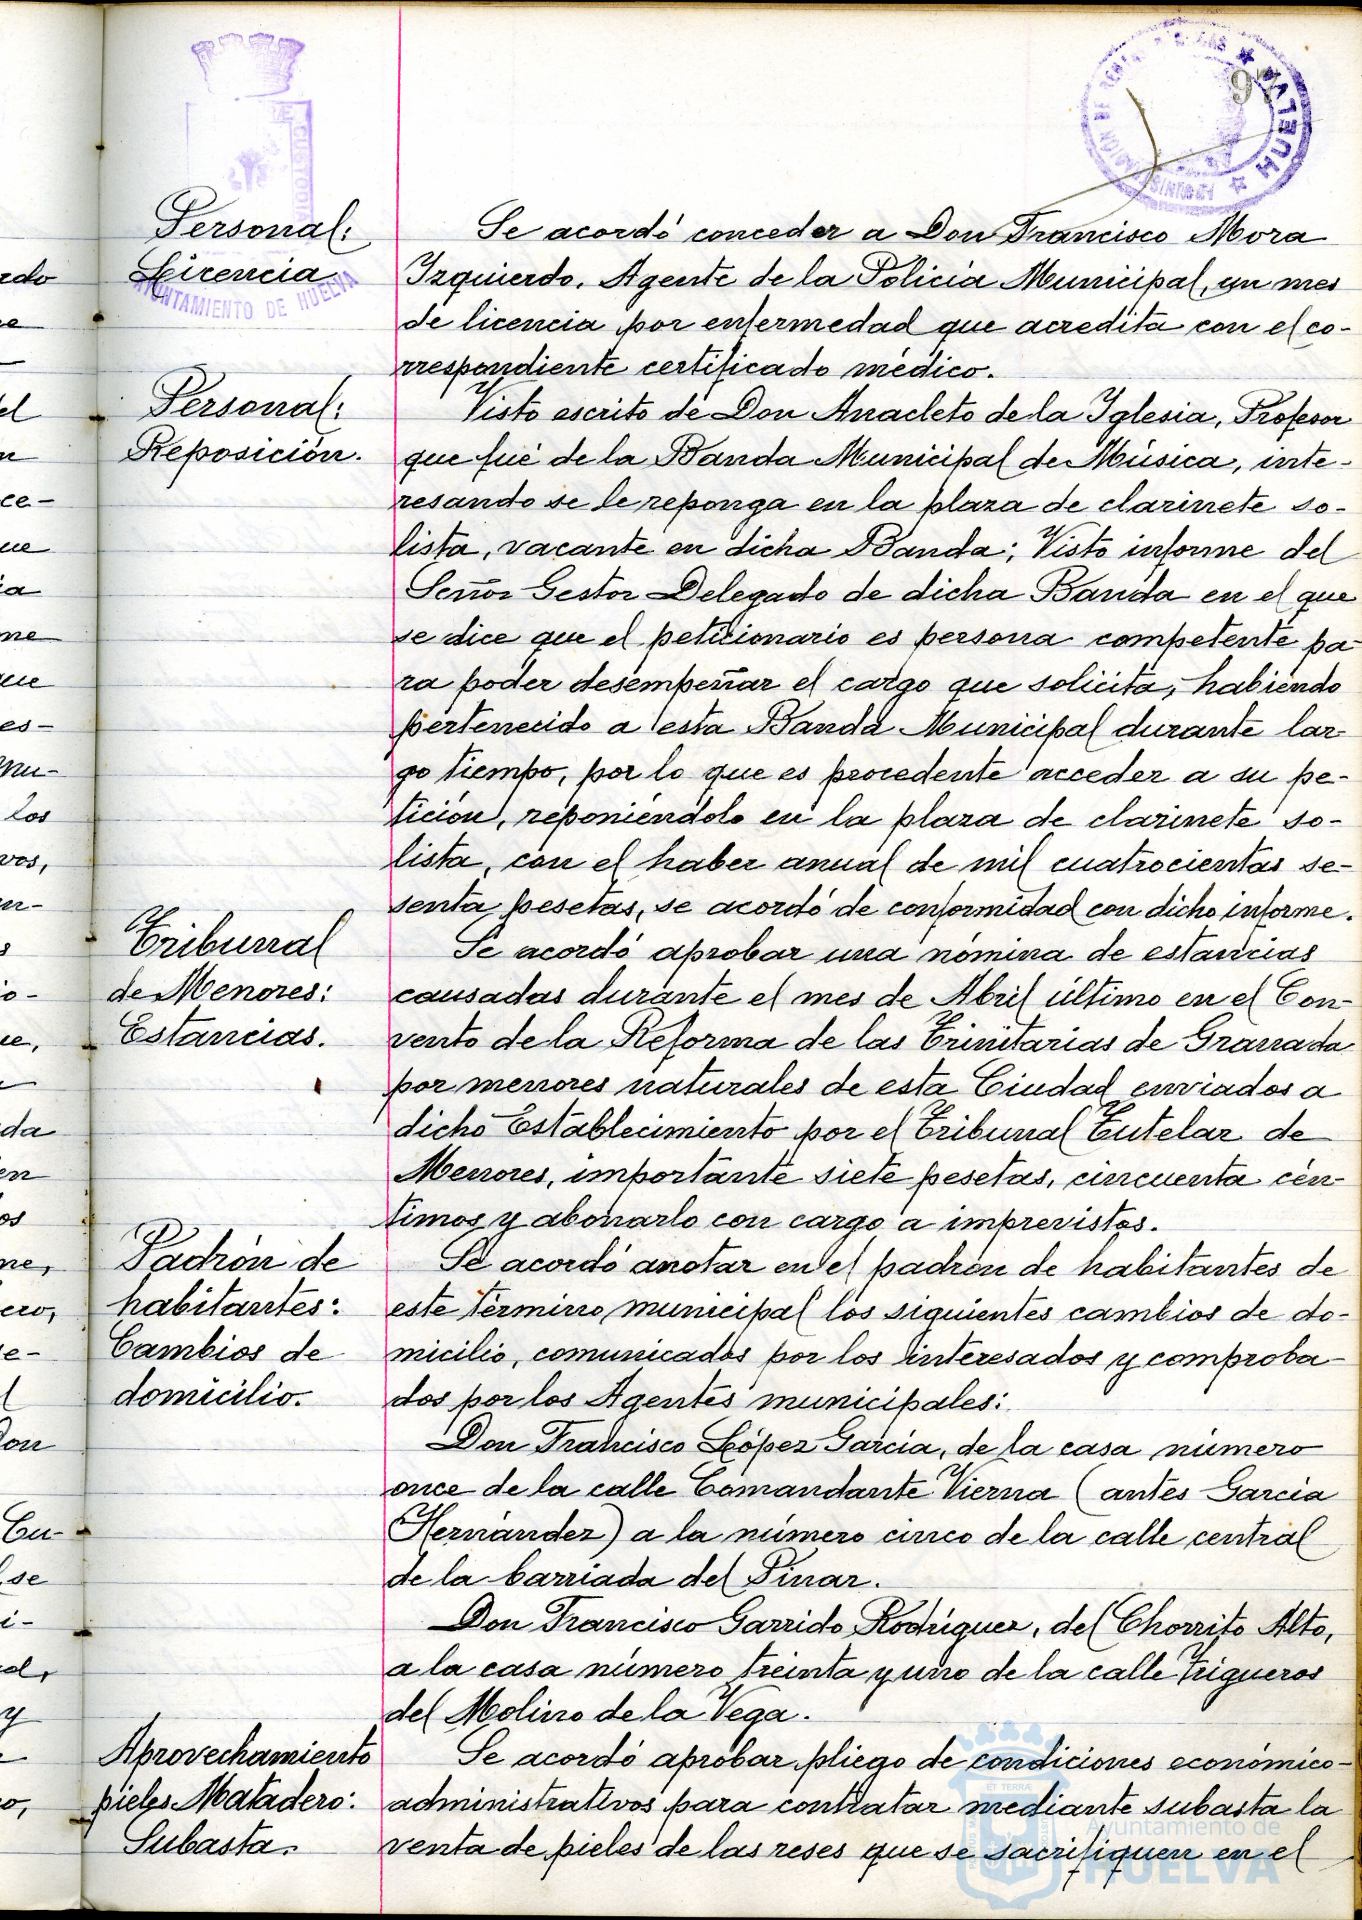 97
HUELVA
CUSTODIA
AYUNTAMIENTO DE HUELVA
Personal:
Licencia
Se acordó conceder a Don Francisco Mora
Izquierdo, Agente de la Policía Municipal, un mes
de licencia por enfermedad que acredita con el co-
rrespondiente certificado médico.
Personal:
Reposición.
Visto escrito de Don Anacleto de la Iglesia, Profesor
que fué de la Banda Municipal de Música, inte-
resando se le reponga en la plaza de clarinete so-
lista, vacante en dicha Banda; Visto informe del
Señor Gestor Delegado de dicha Banda en el que
se dice que el peticionario es persona competente pa-
ra poder desempeñar el cargo que solicita, habiendo
pertenecido a esta Banda Municipal durante lar-
go tiempo, por lo que es procedente acceder a su pe-
tición, reponiéndolo en la plaza de clarinete so-
lista, con el haber anual de mil cuatrocientas se-
senta pesetas, se acordó de conformidad con dicho informe.
Tribunal
de Menores:
Estancias.
Se acordó aprobar una nómina de estancias
causadas durante el mes de Abril último en el Con-
vento de la Reforma de las Trinitarias de Granada
por menores naturales de esta Ciudad enviados a
dicho Establecimiento por el Tribunal Tutelar de
Menores, importante siete pesetas, cincuenta cén-
timos y abonarlo con cargo a imprevistos.
Padrón de
habitantes:
Cambios de
domicilio.
Se acordó anotar en el padrón de habitantes de
este término municipal los siguientes cambios de do-
micilio, comunicados por los interesados y comproba-
dos por los Agentes municipales:
Don Francisco López García, de la casa número
once de la calle Comandante Vierna (antes García
Hernández) a la número cinco de la calle central
de la barriada del Pinar.
Don Francisco Garrido Rodríguez, del Chorrito Alto,
a la casa número treinta y uno de la calle Trigueros
del Molino de la Vega.
Aprovechamiento
pieles Matadero:
Subasta.
Se acordó aprobar pliego de condiciones económico-
administrativos para contratar mediante subasta la
venta de pieles de las reses que se sacrifiquen en el
Ayuntamiento de
HUELVA